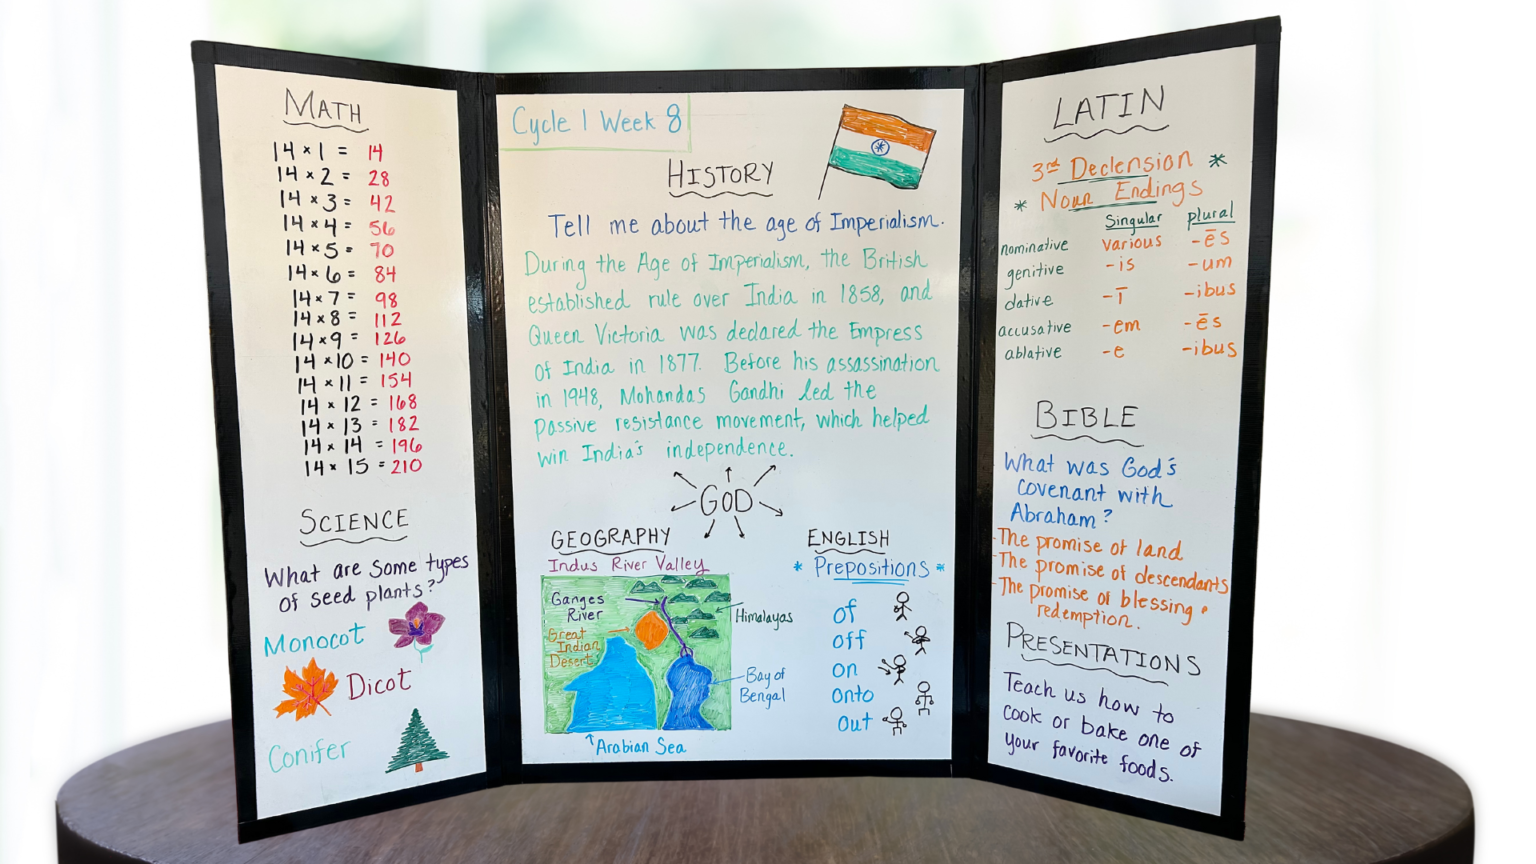 MATH
14 × 1 = 14
14 × 2 = 28
14 × 3 = 42
14 × 4 = 56
14 × 5 = 70
14 × 6 = 84
14 × 7 = 98
14 × 8 = 112
14 × 9 = 126
14 × 10 = 140
14 × 11 = 154
14 × 12 = 168
14 × 13 = 182
14 × 14 = 196
14 × 15 = 210
SCIENCE
What are some types
of seed plants?
Monocot
Dicot
Conifer
Cycle 1 Week 8
HISTORY
Tell me about the age of Imperialism.
During the Age of Imperialism, the British
established rule over India in 1858, and
Queen Victoria was declared the Empress
of India in 1877. Before his assassination
in 1948, Mohandas Gandhi led the
passive resistance movement, which helped
win India's independence.
GOD
GEOGRAPHY
Indus River Valley
Ganges
River
Himalayas
Great
Indian
Desert
Bay of
Bengal
Arabian Sea
ENGLISH
* Prepositions *
of
off
on
onto
out
LATIN
3rd Declension *
* Noun Endings
Singular plural
nominative various -ēs
genitive -is -um
dative -ī -ibus
accusative -em -ēs
ablative -e -ibus
BIBLE
What was God's
covenant with
Abraham?
-The promise of land
-The promise of descendants
-The promise of blessing •
redemption.
PRESENTATIONS
Teach us how to
cook or bake one of
your favorite foods.